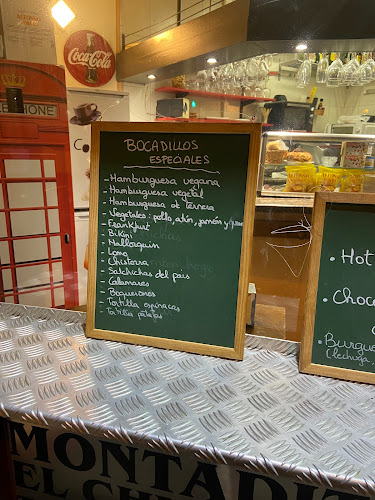 Coca-Cola
PHONE
BOCADILLOS
ESPECIALES
- Hamburguesa vegana
- Hamburguesa vegetal
- Hamburguesa de Ternera
- Vegetales: pollo, atún, jamón y queso
- Frankfurt
- Bikini
- Mallorquin
- Lomo
- Chistorra
- Salchichas del pais
- Calamares
- Boquerones
- Tortilla espinacas
- Tortilla patatas
• Hot
• Choc
• Burgue
(lechuga,
MONTADI
EL CH